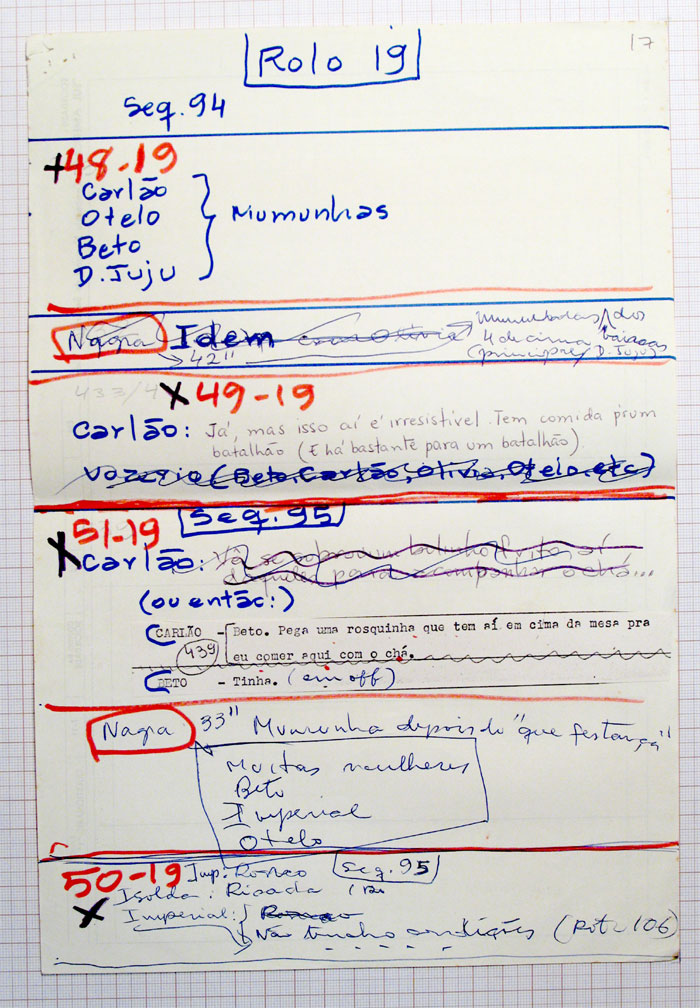 17
Rolo 19
Seq. 94
48-19
Carlão
Otelo
Beto
D. Juju
Mumunhas
Nagra Idem
42"
4 de cima
D. Juju)
433/4
49-19
Carlão: Já, mas isso aí é irresistível. Tem comida prum
batalhão (E há bastante para um batalhão).
Vozerio (Beto, Carlão, Olivia, Otelo, etc)
51-19 Seq. 95
Carlão:
daqueles para acompanhar o chá...
(ou então:)
CARLÃO - Beto. Pega uma rosquinha que tem aí em cima da mesa pra
439
eu comer aqui com o chá.
BETO - Tinha. (em off)
Nagra 33" Mumunha depois do "que festança"
Muitas mulheres
Beto
Imperial
Otelo
50-19 Imp: Ronco Seq. 95
Isolda: Risada
Imperial:
Não tenho condições (Rot. 106)